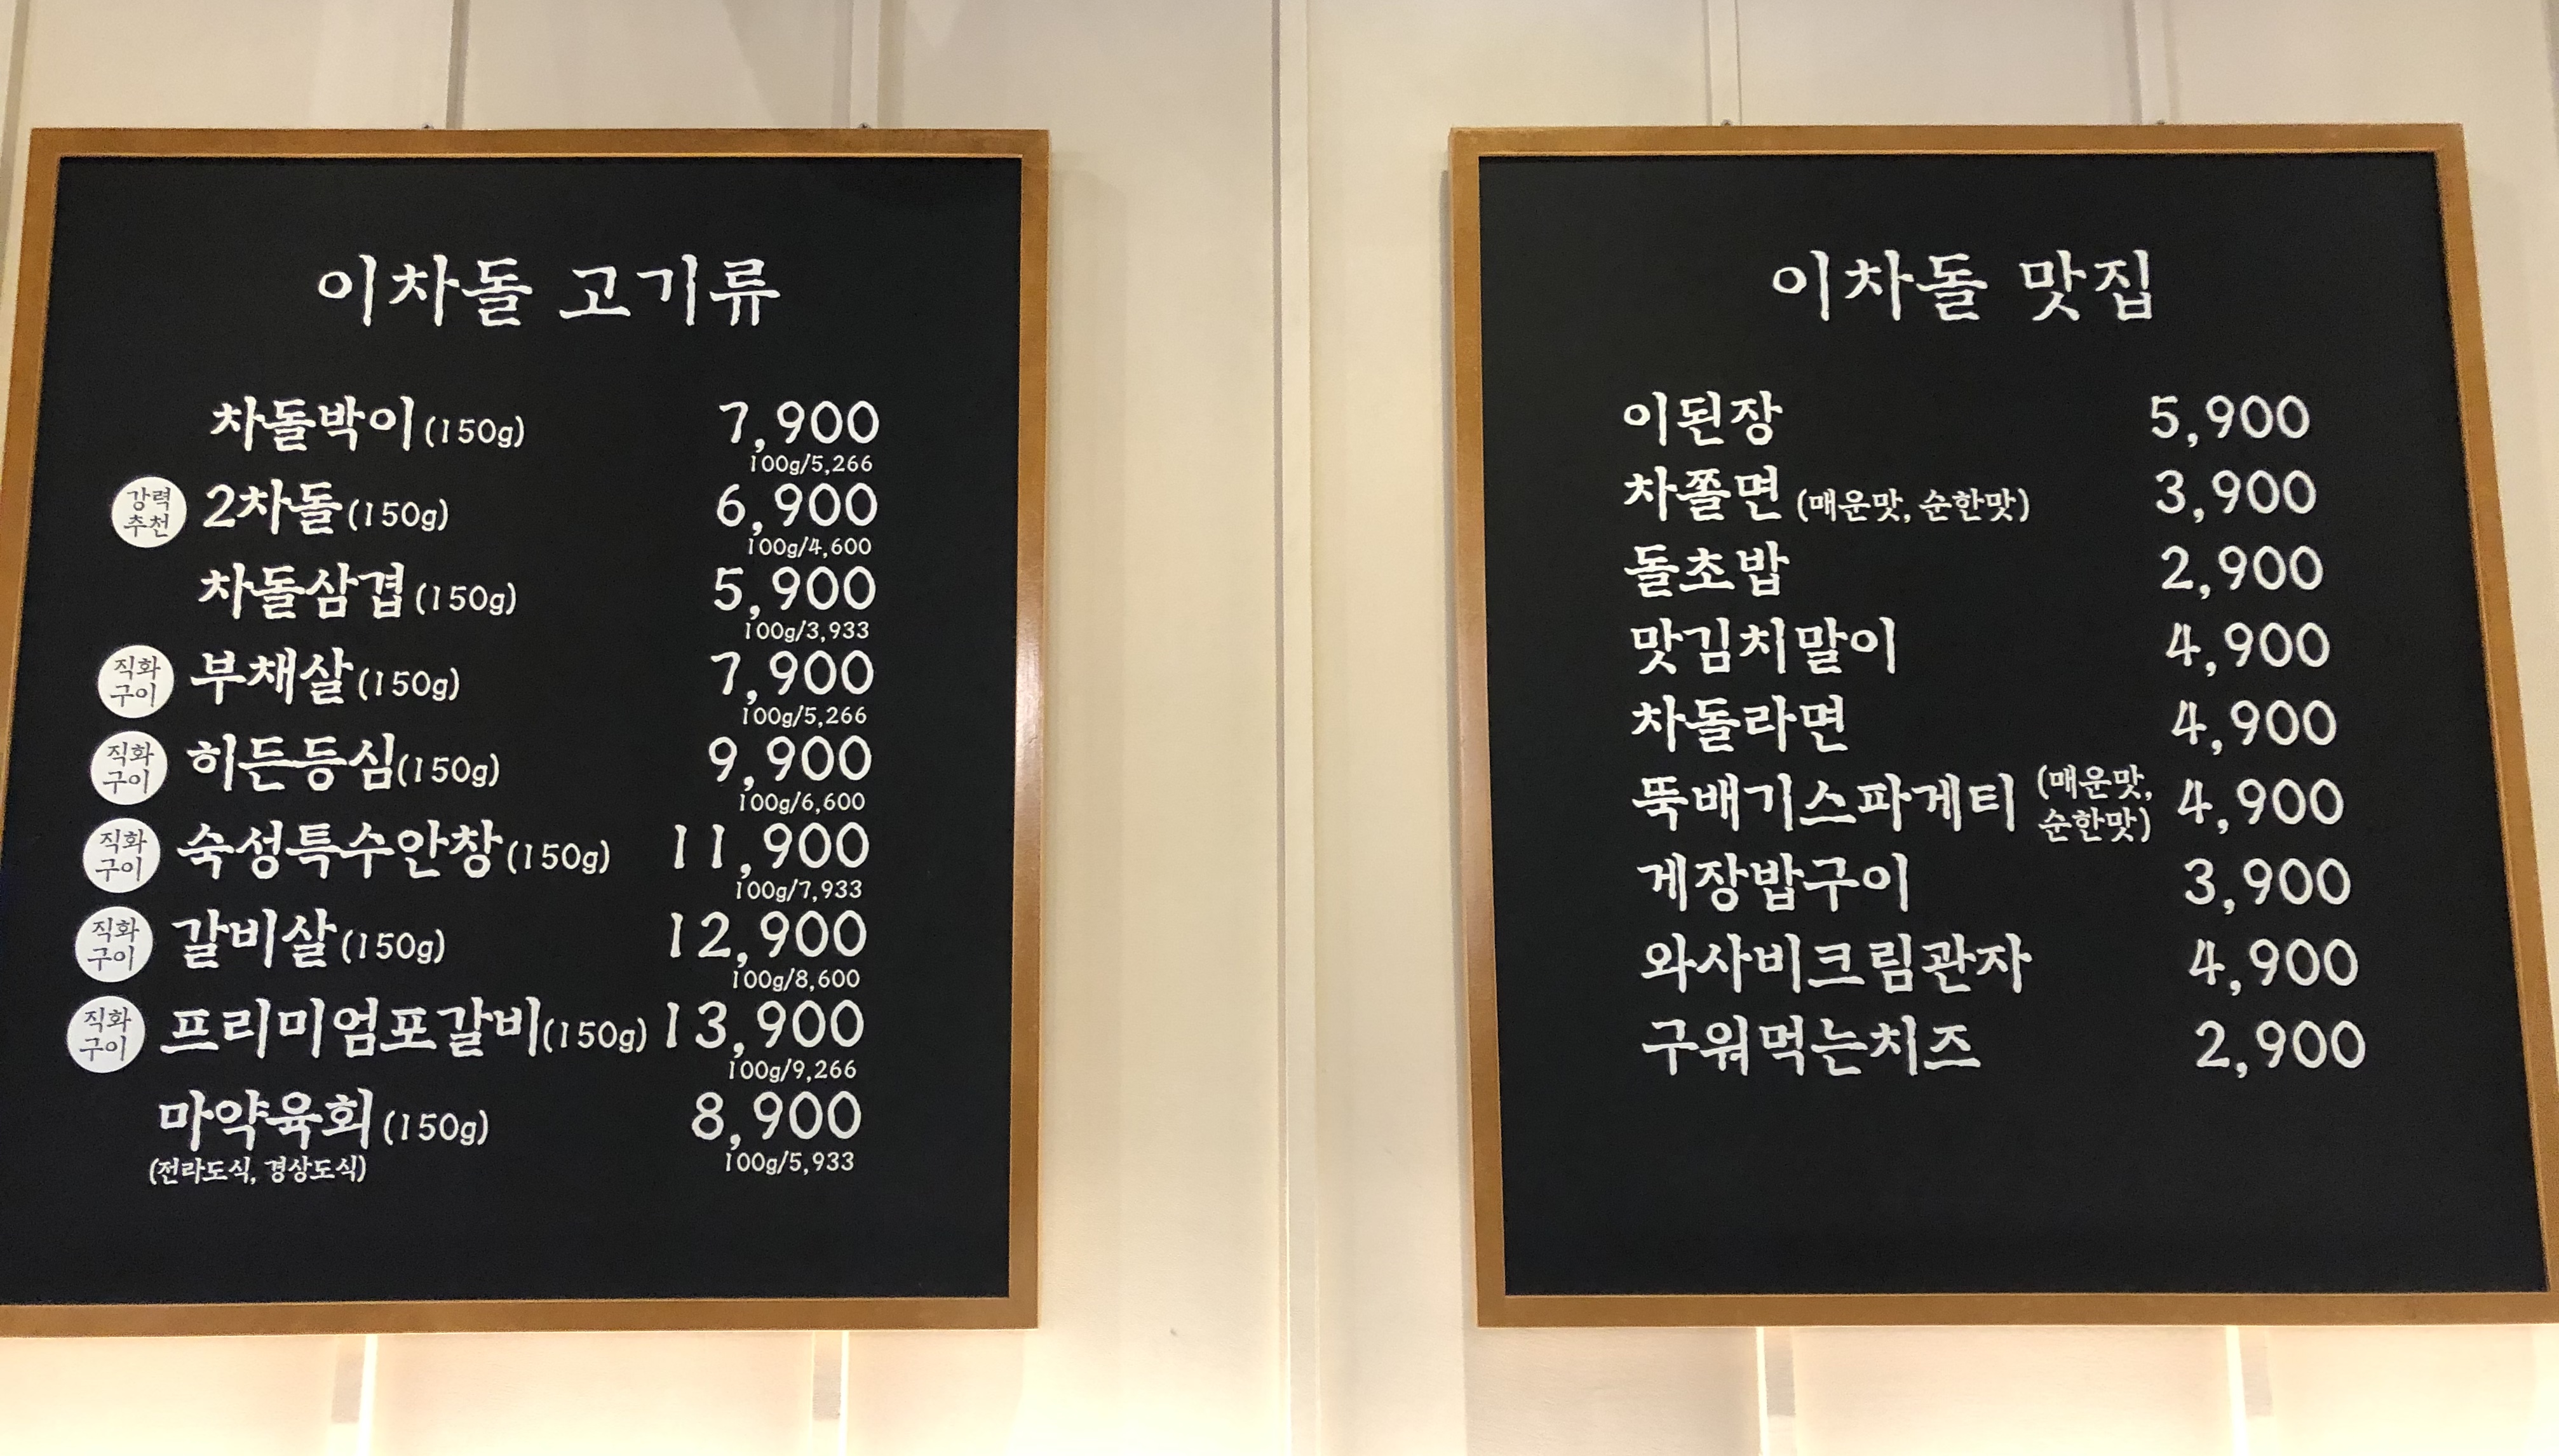 이차돌 고기류
차돌박이(150g) 7,900
100g/5,266
강력
추천
2차돌(150g) 6,900
100g/4,600
차돌삼겹(150g) 5,900
100g/3,933
직화
구이
부채살(150g) 7,900
100g/5,266
직화
구이
히든등심(150g) 9,900
100g/6,600
직화
구이
숙성특수안창(150g) 11,900
100g/7,933
직화
구이
갈비살(150g) 12,900
100g/8,600
직화
구이
프리미엄포갈비(150g) 13,900
100g/9,266
마약육회(150g) 8,900
(전라도식, 경상도식)
100g/5,933
이차돌 맛집
이된장 5,900
차쫄면 (매운맛, 순한맛) 3,900
돌초밥 2,900
맛김치말이 4,900
차돌라면 4,900
뚝배기스파게티 (매운맛, 4,900
순한맛)
게장밥구이 3,900
와사비크림관자 4,900
구워먹는치즈 2,900